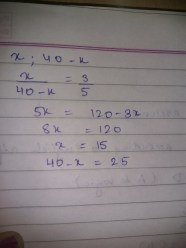 x ; 40 - x
x / 40 - x = 3 / 5
5x = 120 - 3x
8x = 120
x = 15
40 - x = 25